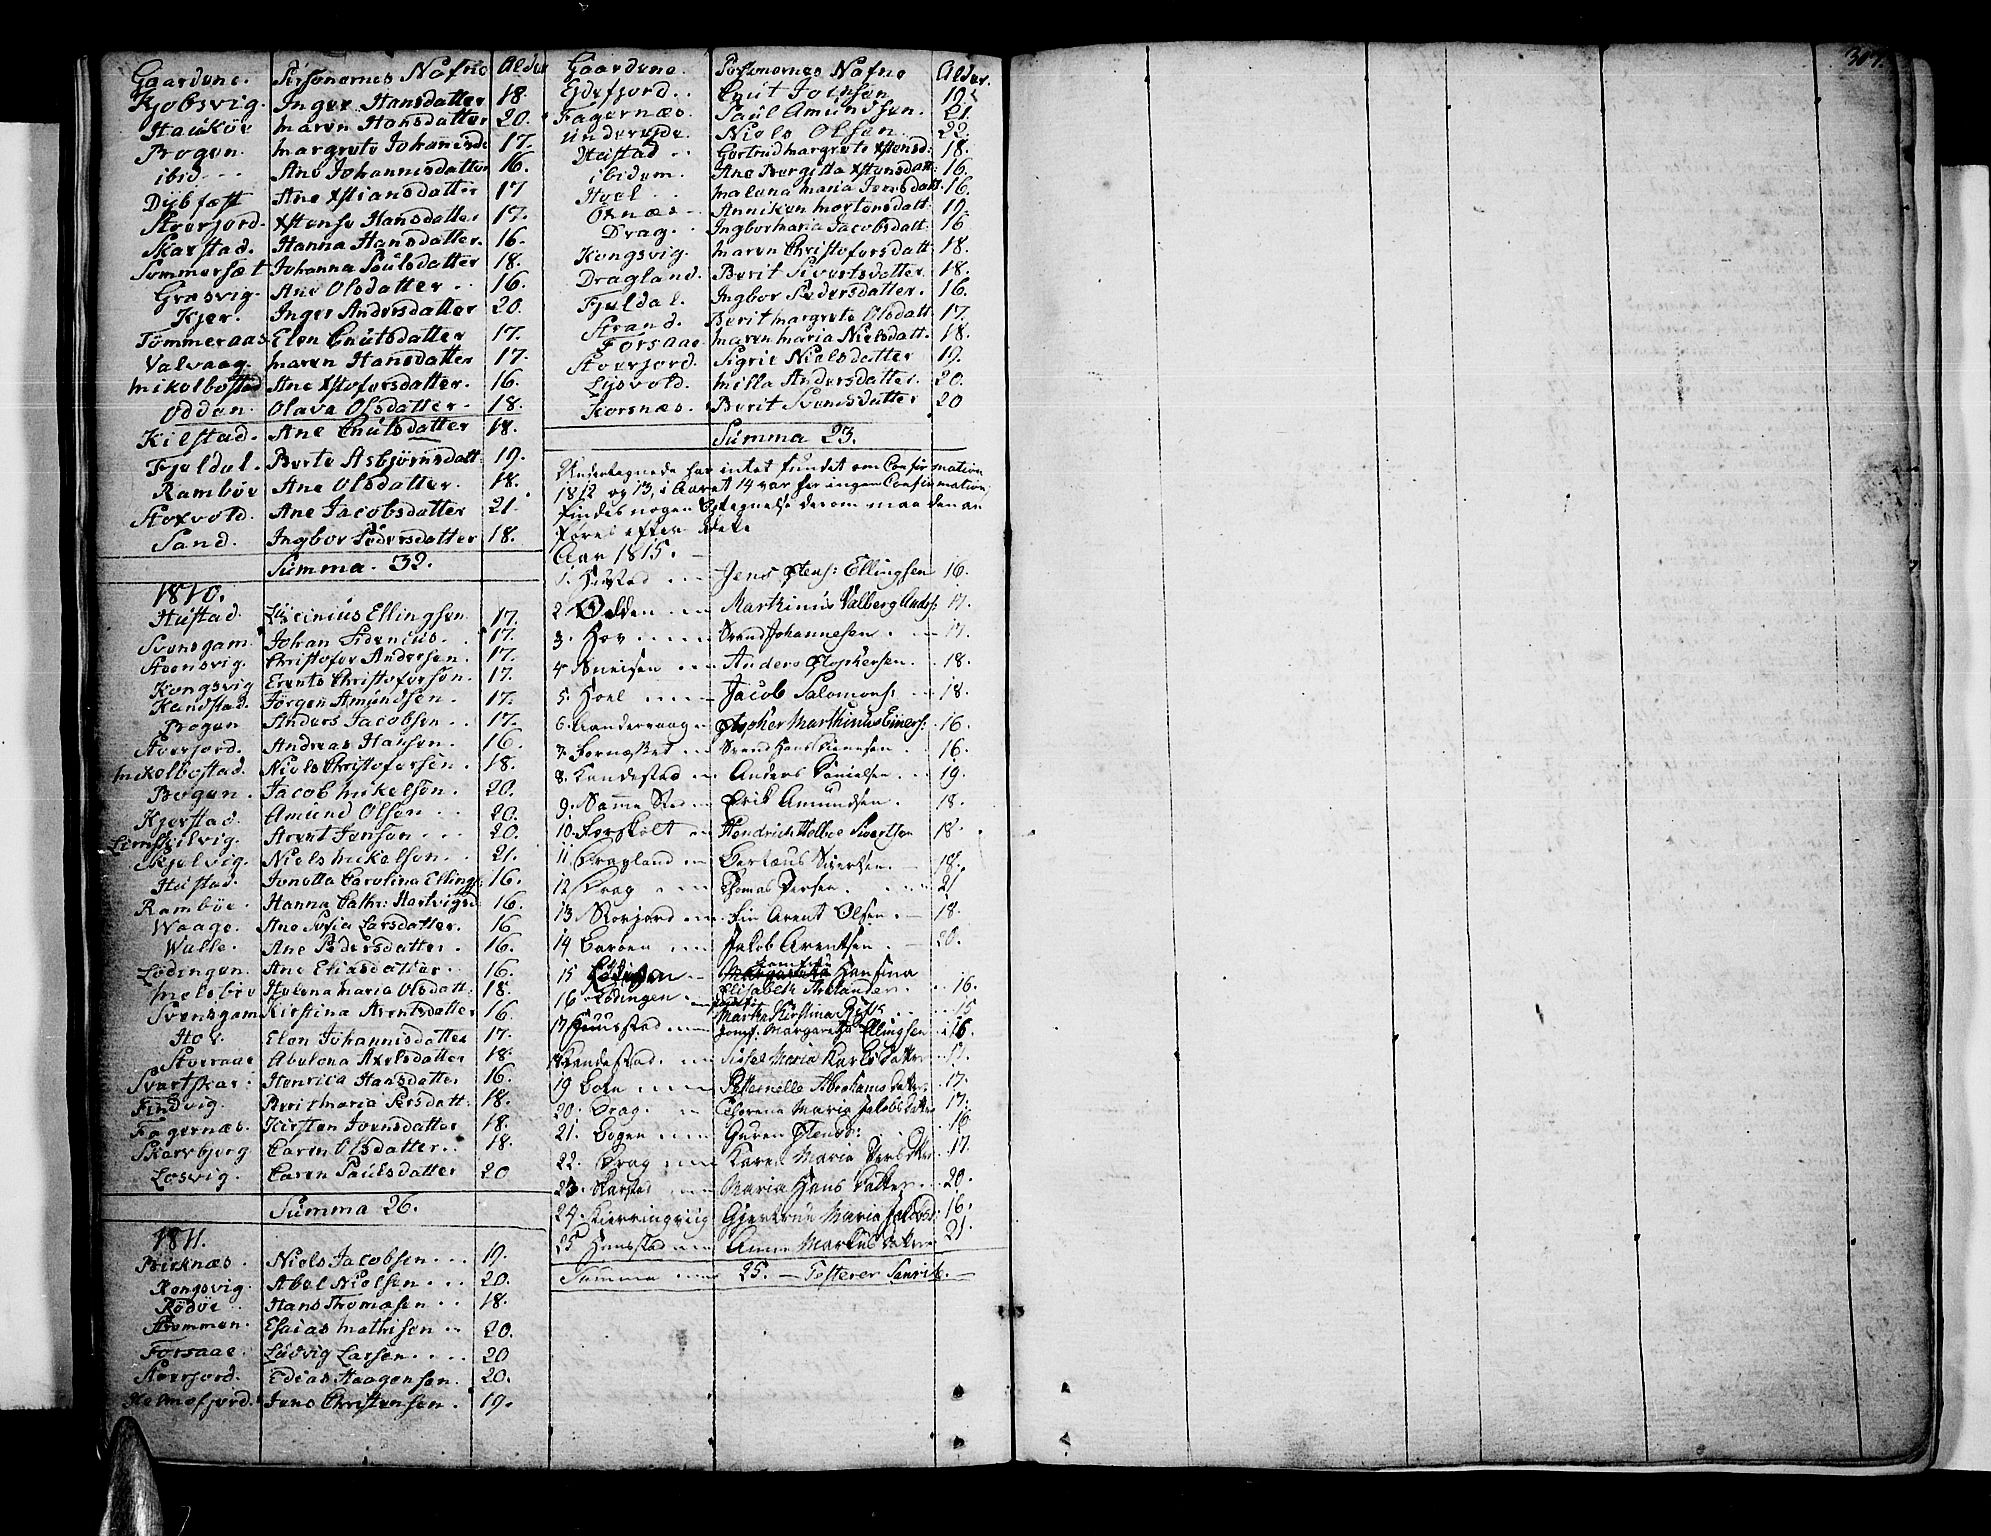 Gaardene. Personernes Nafne Alder
Kjobsvig. Inger Hansdatter 18.
Haukøe Maren Hansdatter 20.
Bogen Margrete Johannisd: 17.
ibid Ane Johannisdatter 16.
Dybfæst Ane Xstiansdatter 17
Storfjord. Xstense Hansdatter 17.
Skarstad. Hanna Hansdatter. 16.
Sommersæt Johanna Paulsdatter 18.
Græsvig. Ane Olsdatter 16.
Kjer. Inger Andersdatter 20.
Tømmeraas Elen Cnutsdatter 17.
Valvaag Maren Hansdatter 17.
Mikelbostad Ane Xstofersdatter. 16.
Odden. Olava Olsdatter. 18.
Kilstad. Ane Cnutsdatter 18.
Fjeldal. Berte Asbjørnsdatt: 19.
Rambøe Ane Olsdatter. 18.
Stoxvold. Ane Jacobsdatter 21.
Sand. Ingbor Pedersdatter 18.
Summa. 39.
1810.
Hustad. Licinius Ellingsen 17.
Svensgam Johan Sidencius. 17.
Steensvig. Christofer Andersen. 17.
Kongsvig Erents Christofersøn. 17.
Kandstad. Jørgen Amundsen. 17.
Bogen Anders Jacobsen 17.
Storfjord. Andreas Hansen. 16.
Mikelbostad. Niels Christofersen. 18.
Bogen. Jacob Mikelsøn. 20.
Kjerstad. Amund Olsen 20.
Kilvig. Arent Jensen 20.
Kjelvig. Niels Mikelsøn. 21.
Hustad. Jonetta Carolina Ellings: 16.
Rambøe. Hanna Cathr: Hartvigsd: 16.
Waage. Ane Sofia Larsdatter. 16
Walle. Ane Pedersdatter. 16.
Lødingen. Ane Eliasdatter 16.
Melsbøe Helena Maria Olsdatt: 18.
Svensgam Kirstina Arentsdatter 16.
Hol. Elen Johannisdatter 17.
Storraae Abelona Axelsdatter 18.
Svartskar. Henrica Hansdatter 16.
Findvig. Berit Maria Persdatt: 18.
Fagernæs. Kirsten Jvensdatter 18.
Skarvbjerg Caren Olsdatter 18.
Losvig. Caren Paulsdatter 20
Summa 26.
1811.
Birknæs. Niels Jacobsen 19.
Kongsvig. Abel Nielsen 20.
Rødøe Hans Thomasen 18.
Strømmen. Esaias Mathisen 20.
Forsaae. Ludvig Larsen. 20
Storfjord. Edias Haagensen. 20.
Helmofjord. Jens Christensen. 19.
Gaardene. Personernes Nafne Alder.
Edefjord. Cnut Joensen 19.
Fagernæs. Paul Amundsen. 21.
Undereyde. Niels Olsen. 22.
Hustad Gertrud Margrete Xstensd: 18.
ibidem. Ane Bergitta Xstensdatt: 16.
Hoel Malena Maria Jensdatt. 16.
Oxnæs Anniken Mortensdatt: 19.
Drag. Ingbor Maria Jacobsdatt: 16
Kongsvig. Maren Christofersdatt. 18.
Dragland. Berit Sivertsdatter. 18.
Fjeldal. Ingbor Pedersdatter. 16.
Strand. Berit Margrete Olsdatt: 17.
Forsaae Maren Maria Nielsdatt. 18.
Storfjord. Sigrie Nielsdatter 19.
Lijsvold. Milla Andersdatter. 20.
Korsnæs. Berit Svensdatter 20
Summa 23.
Undertegnede har intet fundet om Confirmation
1812 og 13, i Aaret 14 var her ingen Confirmation,
findes nogen Optegnelse derom maa den an
føres efter dette
Aar 1815.
1. Hustad Jens Stens: Ellingsen 16.
2 Odden Marthinus Valberg Ands: 17.
3. Hov Svend Johannesen. 17.
4 Sneisen Anders Stophersen. 18.
5. Hoel Jacob Salomons: 18.
6. Sandervaag Stopher Marthinus Einers: 16.
7. Svend Hans 16.
8. Kandestad Anders Danielsen 19.
9. Samme Sted Erik Amundsen. 18.
10. Forskolt Hendrich Helbæ Sivertsen 18.
11. Dragland Bertæus Sivertsen 18.
12 Drag Thomas Persen. 21
13 Storjord Fin Arent Olsen. 18.
14 Barøen Jakob Arentsen. 20.
15 Lødingen Jomfru Hansina
Elisabeth Ahlander. 16.
16 Lødingen. Martha Kirstina 15
17. Huusstad Jomf. Margaretha Ellingsen 16.
18. Kandestad. Sissel Maria Karls Datter 17.
19 Boen Petternelle Abrahams Datter 17.
20. Drag. Thorene Maria Jakobs Datter 17.
21. Bogen Guren Stensd: 16
22. Drag Karen Maria Pers Datter 17.
23. Skarstad Maria Hans Datter 20.
24. Kierringviig Gjertrue Maria Jakobsd: 16.
25 Huusstad Anne Markus Datter 21.
Summa 25.
307.